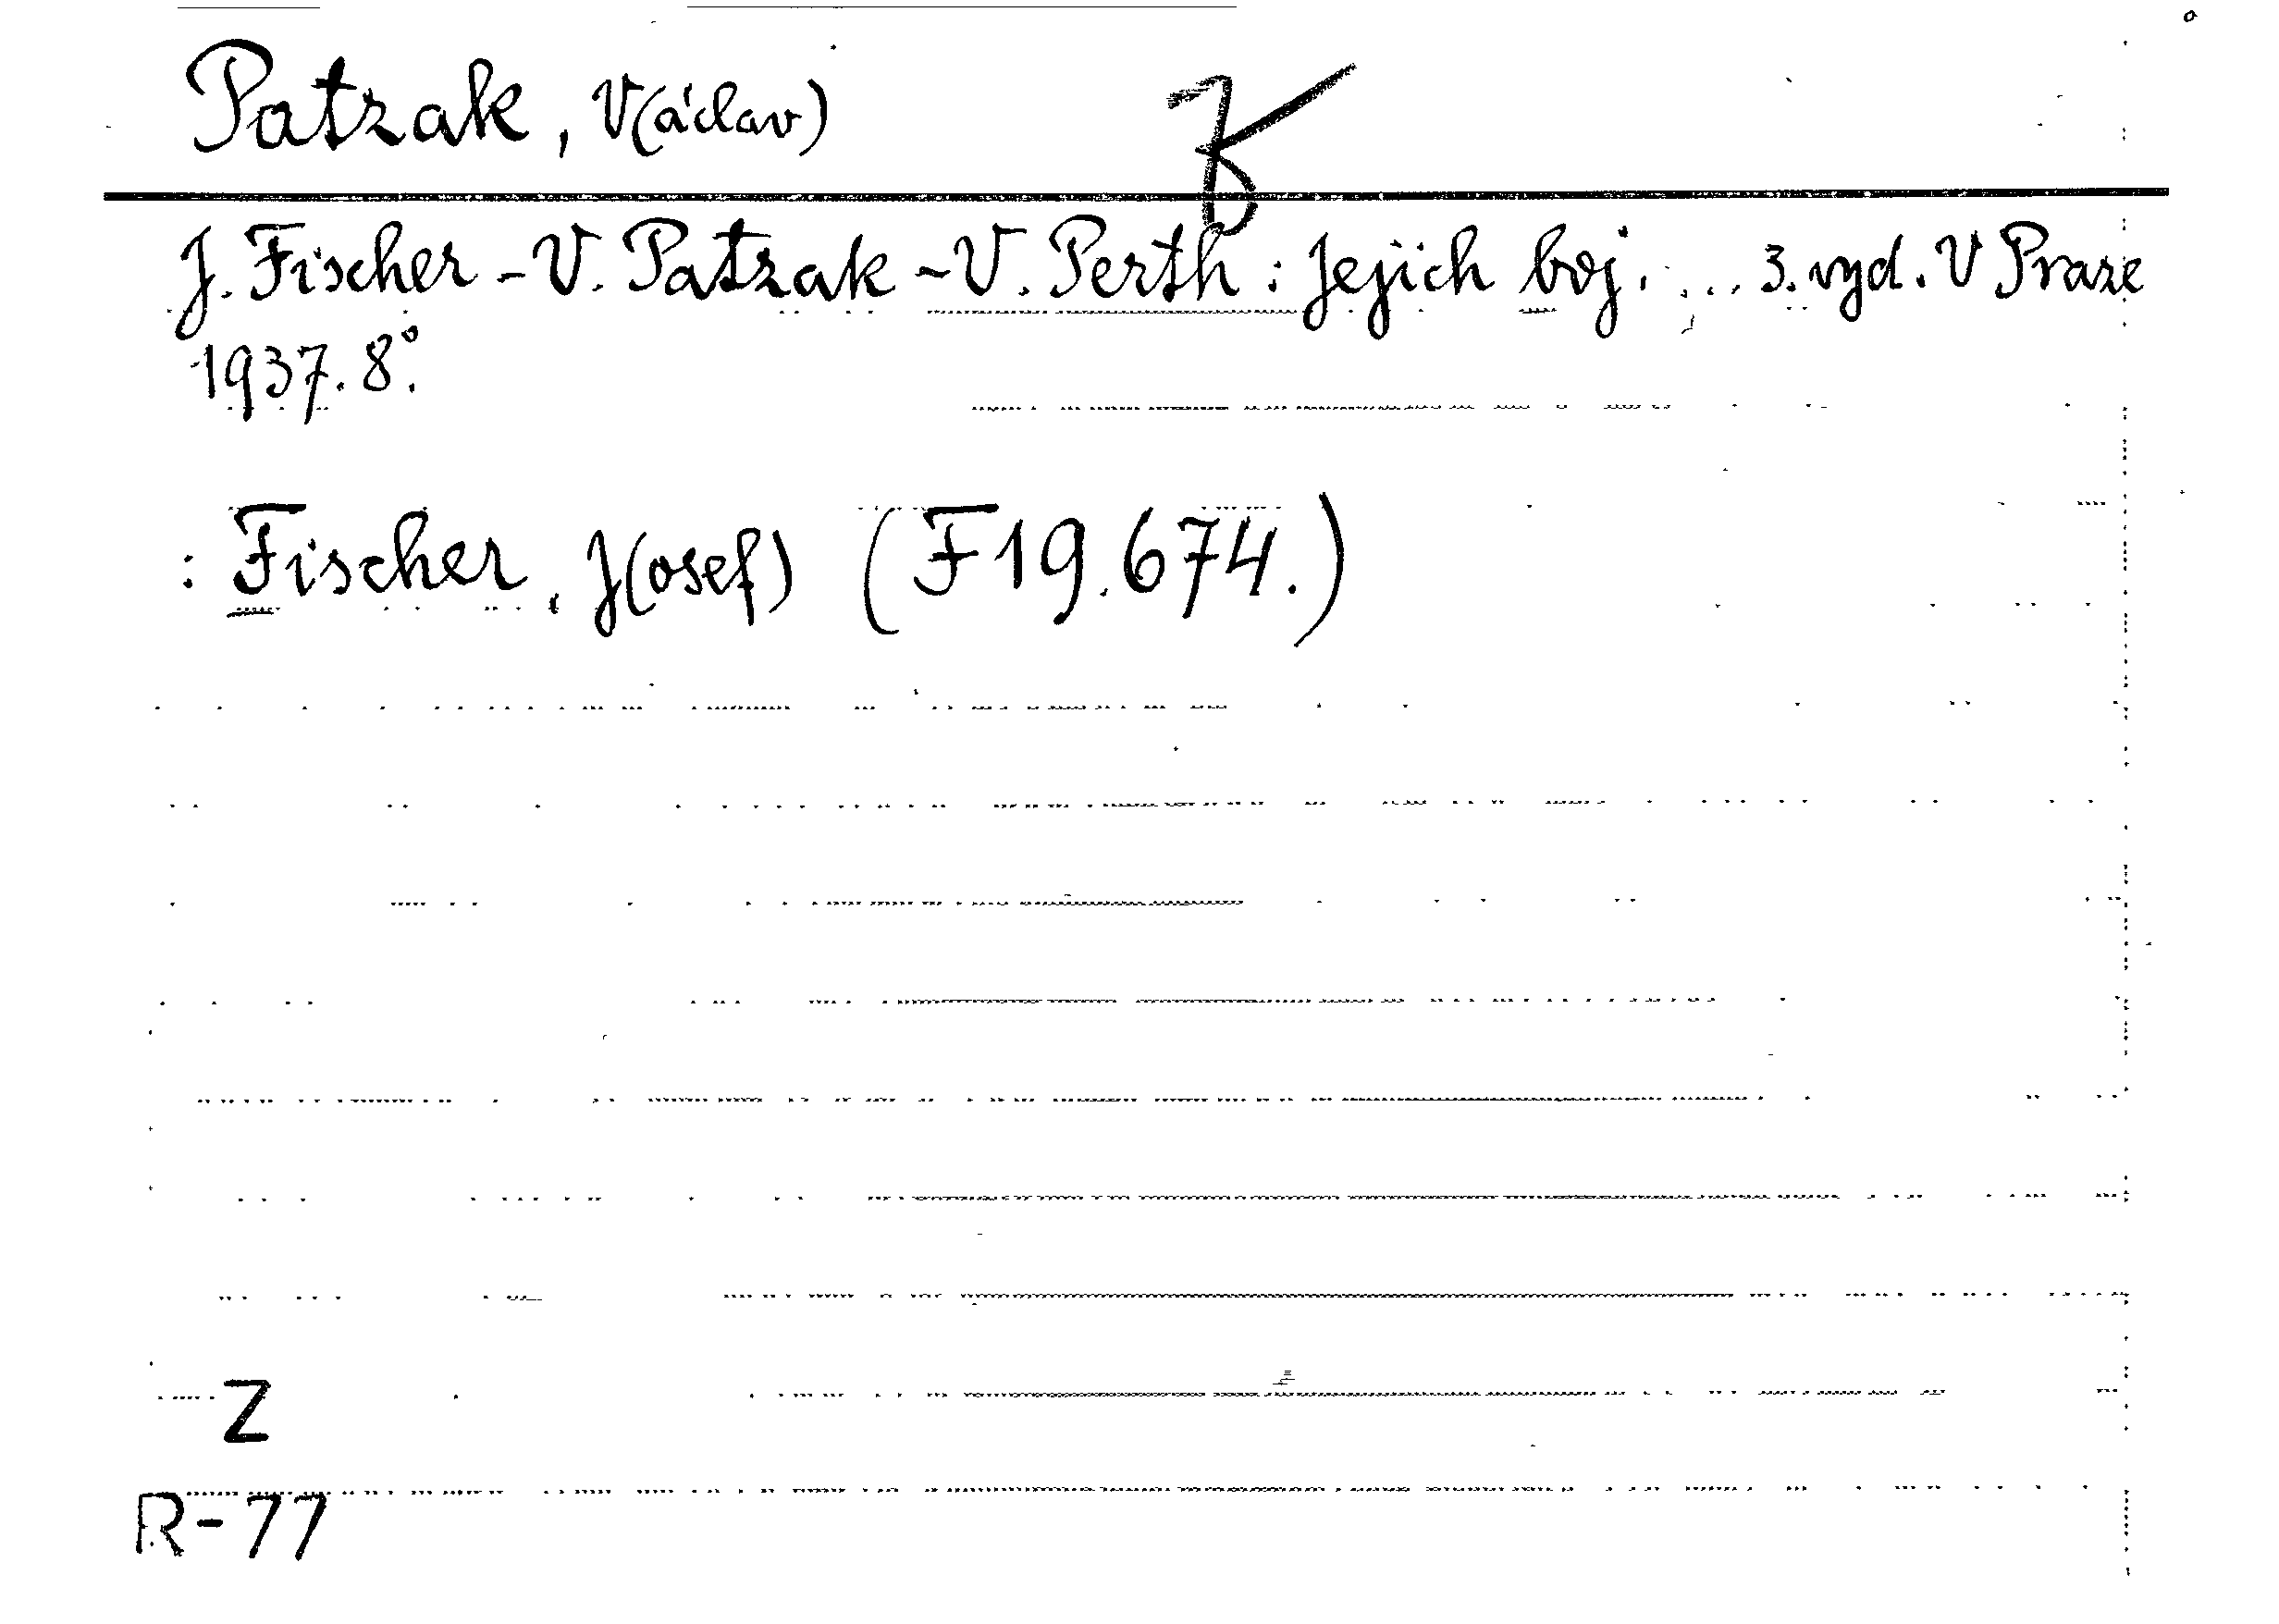 Patzak, V(áclav)
J. Fischer - V. Patzak - V. Perth: Jejich boj. ... 3. vyd. V Praze
1937. 8°.
: Fischer, J(osef) (F 19.674.)
Z
R-77